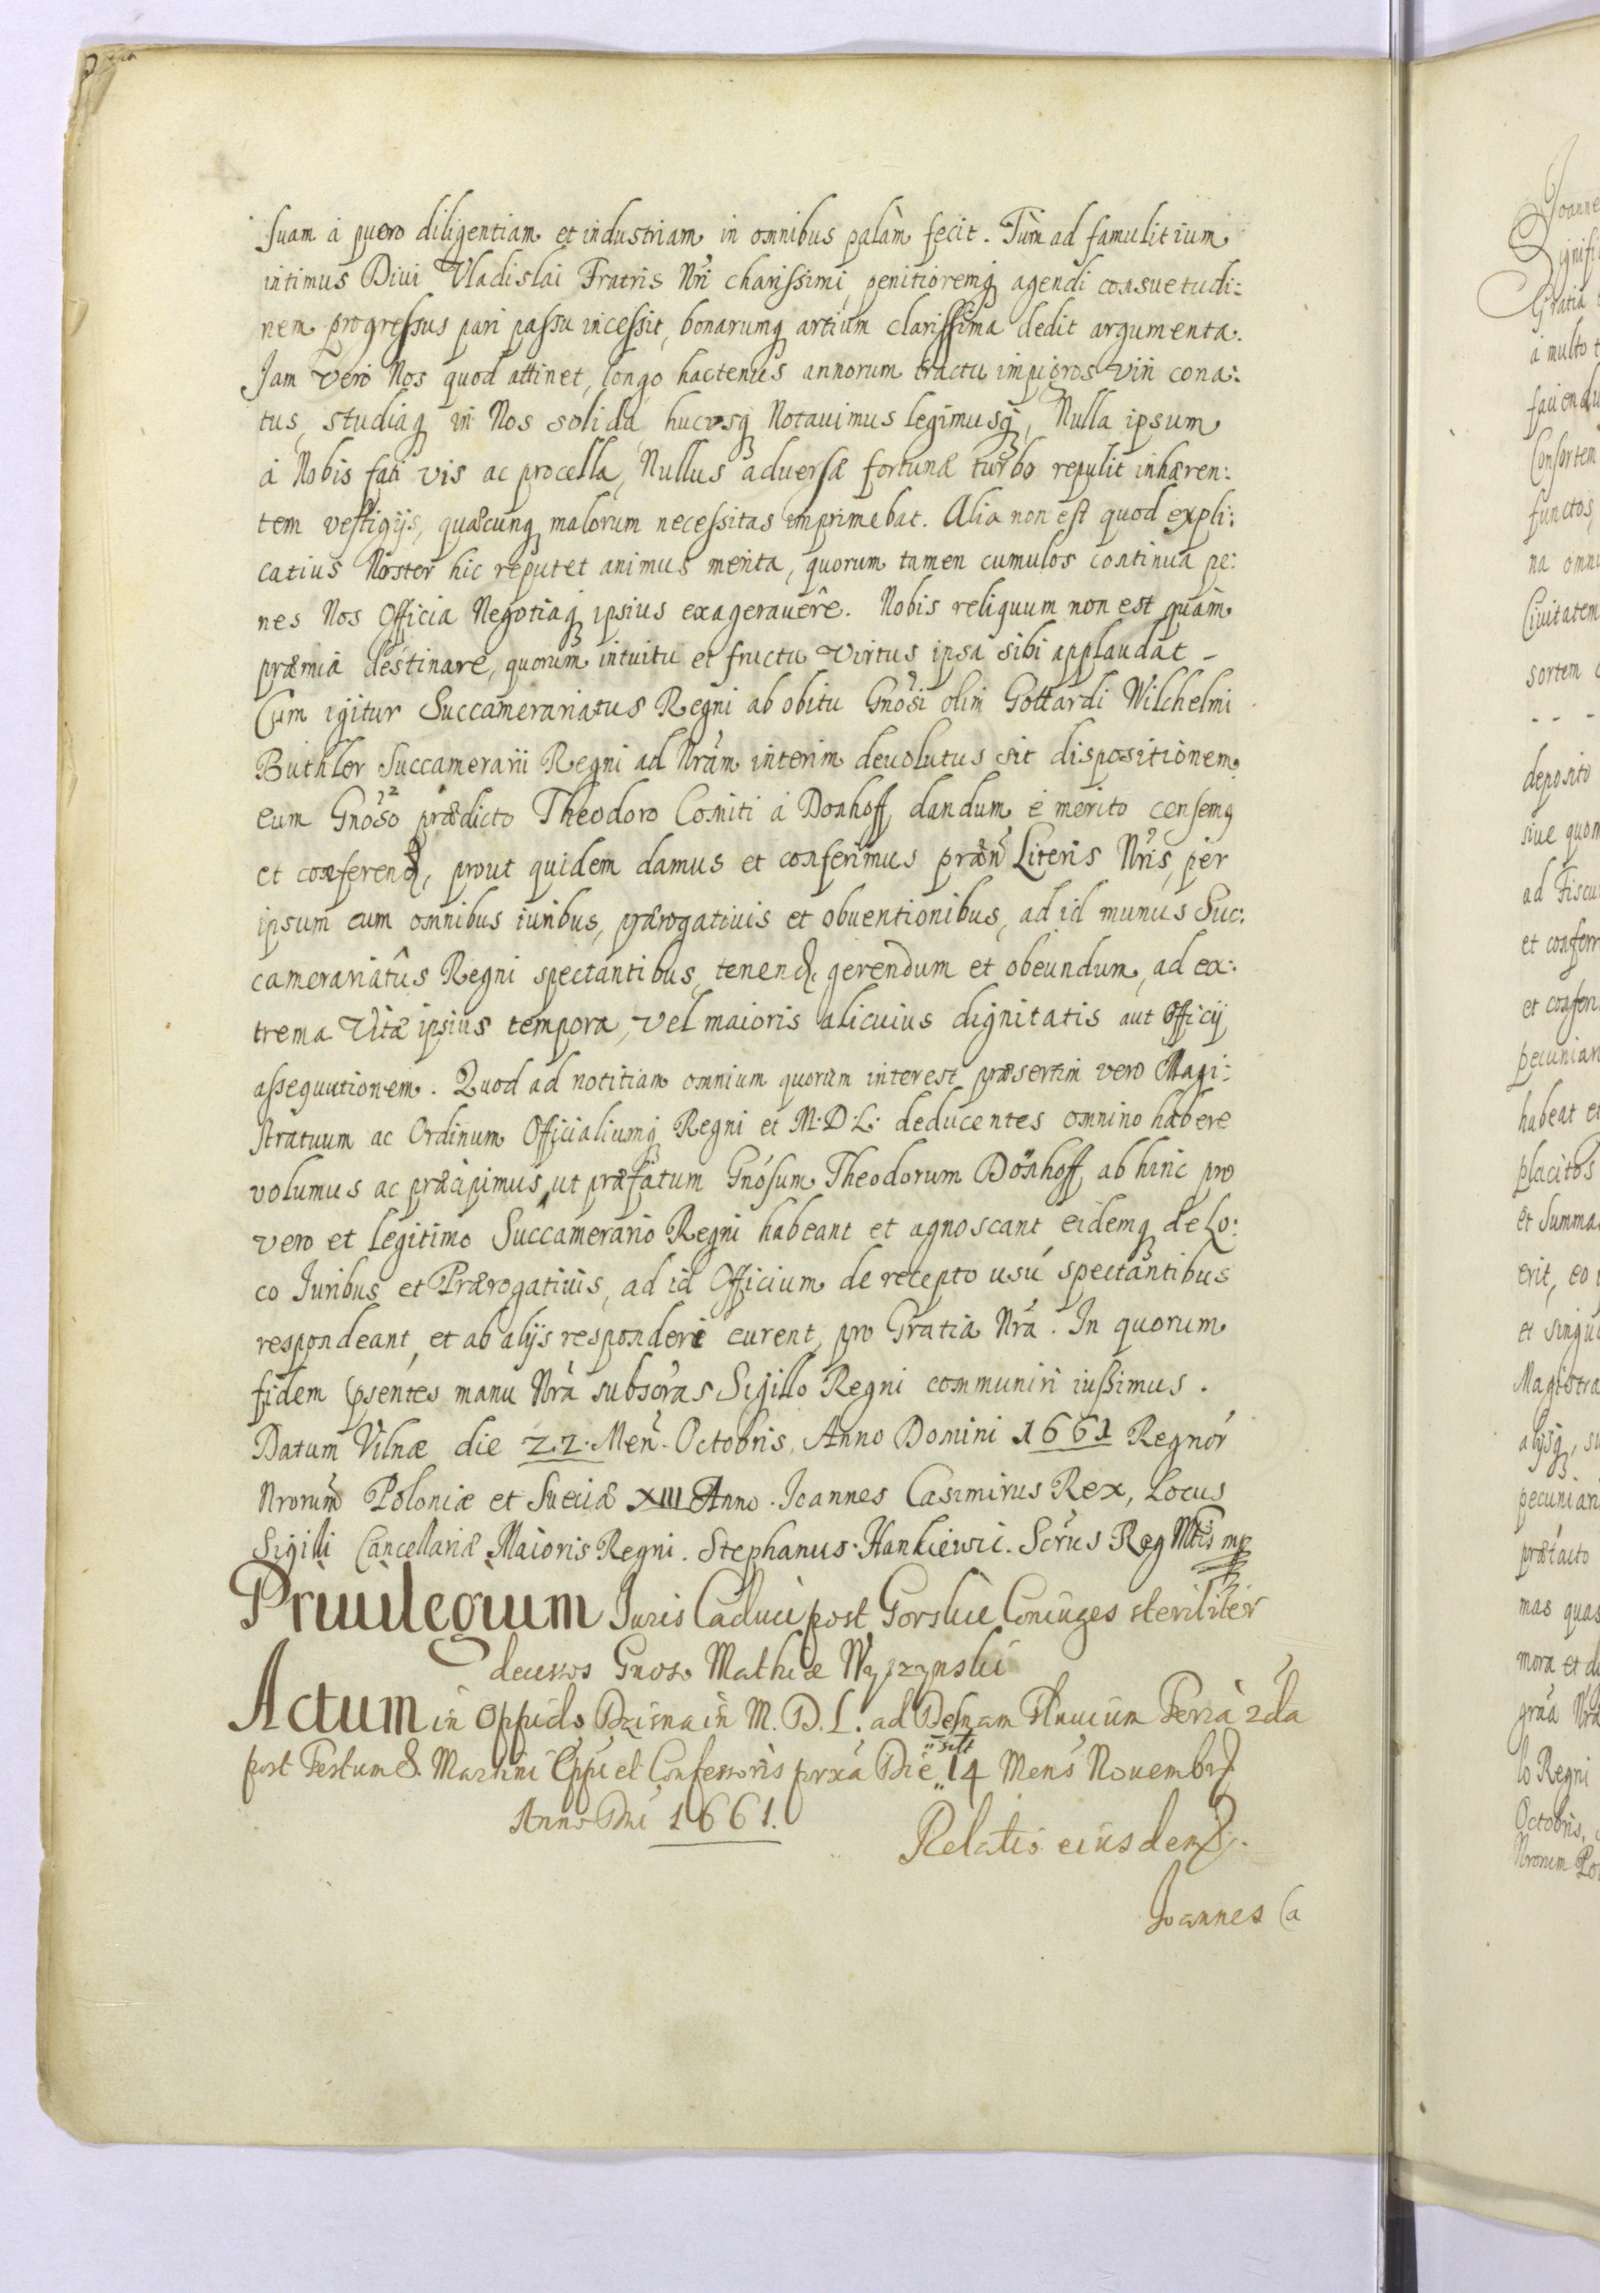 suam à puero diligentiam et industriam in omnibus palàm fecit. Tùm ad famulitium
intimus Diui Vladislai Fratris Nri charissimi, penitioremq agendi consuetudi:
nem progressus pari passu incessit, bonarumq artium clarissima dedit argumenta.
Jam vero Nos quod attinet, longo hactenus annorum tractu impigros viri cona:
tus, studiaq in Nos solida hucusq Notauimus legimusq, Nulla ipsum
à Nobis fati vis ac procella, Nullus aduersæ fortunæ turbo repulit inhæren:
tem vestigijs, quæcunq malorum necessitas imprimebat. Alia non est quod expli:
catius Noster hic reputet animus merita, quorum tamen cumulos continua pe:
nes Nos Officia Negotiaq ipsius exagerauêre. Nobis reliquum non est quàm
præmia destinare, quorum intuitu et fructu Virtus ipsa sibi applaudat -
Cum igitur Succamerariatus Regni ab obitu Gnosi olim Gottardi Wilchelmi
Buthler Succamerarii Regni ad Nram interim deuolutus sit dispositionem,
eum Gnoso prædicto Theodoro Comiti à Donhoff, dandum è merito censemq
et conferend, prout quidem damus et conferimus præn Literis Nris, per
ipsum cum omnibus iuribus, prærogatiuis et obuentionibus, ad id munus Suc:
camerariatûs Regni spectantibus, tenend, gerendum et obeundum, ad ex:
trema Vitæ ipsius tempora, vel maioris alicuius dignitatis aut Officij
assequutionem. Quod ad notitiam omnium quorum interest præsertim vero Magi:
stratuum ac Ordinum Officialiumq Regni et M. D. L. deducentes omnino habere
volumus ac præcipimus, ut præfatum Gnosum Theodorum Dönhoff, ab hinc pro
vero et legitimo Succamerario Regni habeant et agnoscant eidemq de Lo:
co Iuribus et Prærogatiuis, ad id Officium de recepto usú spectantibus
respondeant, et ab alijs responderi curent, pro Gratia Nra. In quorum
fidem psentes manu Nra subscras Sigillo Regni communiri iussimus.
Datum Vilnæ die 22. Men. Octobris, Anno Domini 1661 Regnor
Nrorum Poloniæ et Sueciæ XIII Anno. Joannes Casimirus Rex, Locus
Sigilli Cancellariæ Maioris Regni. Stephanus Hankiewic. Scrus Reg Mtis mp
Priuilegium Juris Caduci post Gorskie Coniuges steriliter
decessos Gnoso Mathiæ Wyrzynski
Actum in Oppido Dzisna in M. D. L. ad Desnam Fluuium Feria 2da
post Festum S. Martini Eppi et Confessoris prxa Die 14 Mens Nouembr
Anno Dni 1661.
Relatio eiusdem.
Joannes Ca